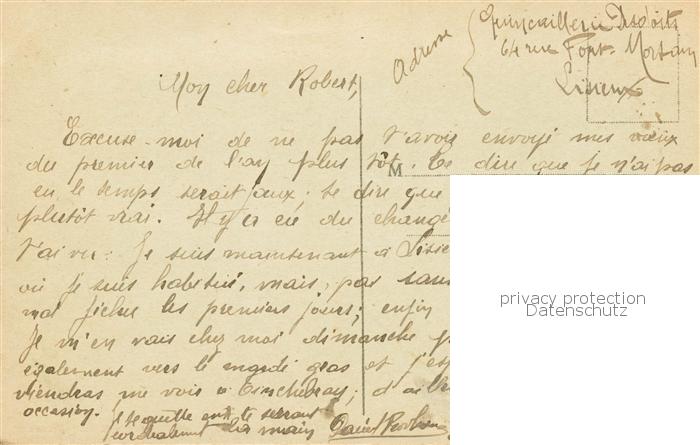 Adresse
Quincaillerie
64 rue Font-
Lisieux
Mon cher Robert,
Excuse-moi de ne pas t'avoir envoyé mes vœux
du premier de l'an plus tôt. Te dire que je n'ai pas
M
eu le temps serait faux. te dire que
plutôt vrai. Il y a eu du changé
t'ai vu: Je suis maintenant à Lisie
où je suis habitué, mais, pas sans
mal fichu les premiers jours; enfin
Je m'en vais chez moi dimanche
également vers le mardi gras et j'esp
viendras me voir à Tinchebray; d'ai
occasion. Je te quitte en te serrant
cordialement la main
privacy protection
Datenschutz